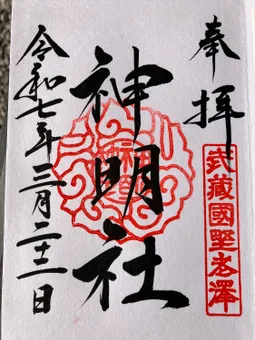 奉拝
武藏國埜老澤
神明社
令和七年三月二十一日